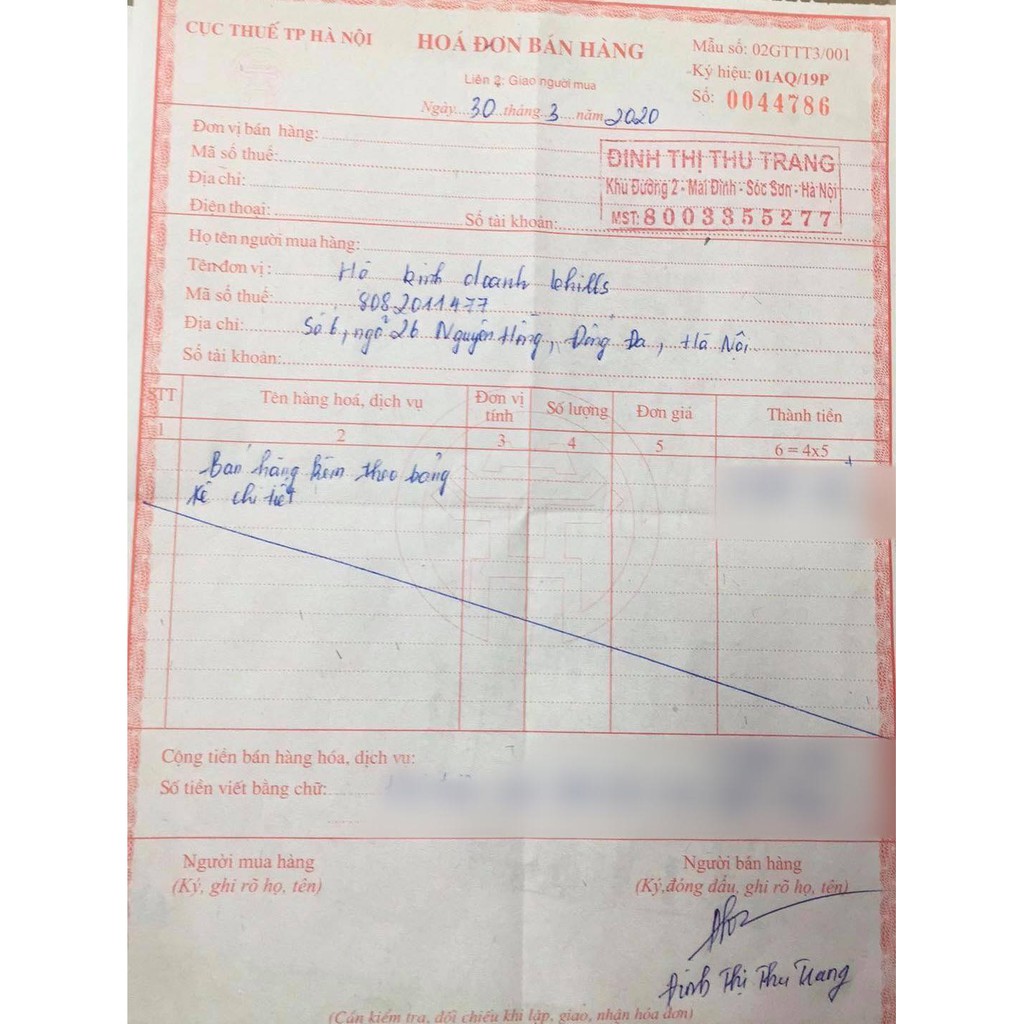 CỤC THUẾ TP HÀ NỘI
HOÁ ĐƠN BÁN HÀNG
Mẫu số: 02GTTT3/001
Liên 2: Giao người mua
Ký hiệu: 01AQ/19P
Ngày 30 tháng 3 năm 2020
Số: 0044786
Đơn vị bán hàng:
ĐINH THỊ THU TRANG
Mã số thuế:
Khu Đường 2 - Mai Đình - Sóc Sơn - Hà Nội
Địa chỉ:
MST: 8003355277
Điện thoại:
Số tài khoản:
Họ tên người mua hàng:
Tên đơn vị: Hộ kinh doanh khills
Mã số thuế: 8082011477
Địa chỉ: Số 6, ngõ 26 Nguyên Hồng, Đống Đa, Hà Nội
Số tài khoản:
STT Tên hàng hoá, dịch vụ Đơn vị tính Số lượng Đơn giá Thành tiền
1 2 3 4 5 6 = 4x5
Bán hàng kèm theo bảng
kê chi tiết
Cộng tiền bán hàng hóa, dịch vụ:
Số tiền viết bằng chữ:
Người mua hàng Người bán hàng
(Ký, ghi rõ họ, tên) (Ký,đóng dấu, ghi rõ họ, tên)
Đinh Thị Thu Trang
(Cần kiểm tra, đối chiếu khi lập, giao, nhận hóa đơn)